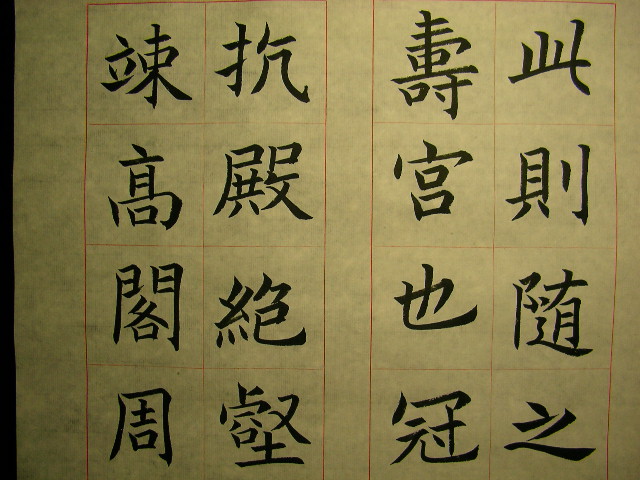 此則随之
壽宮也冠
抗殿絶壑
竦高閣周